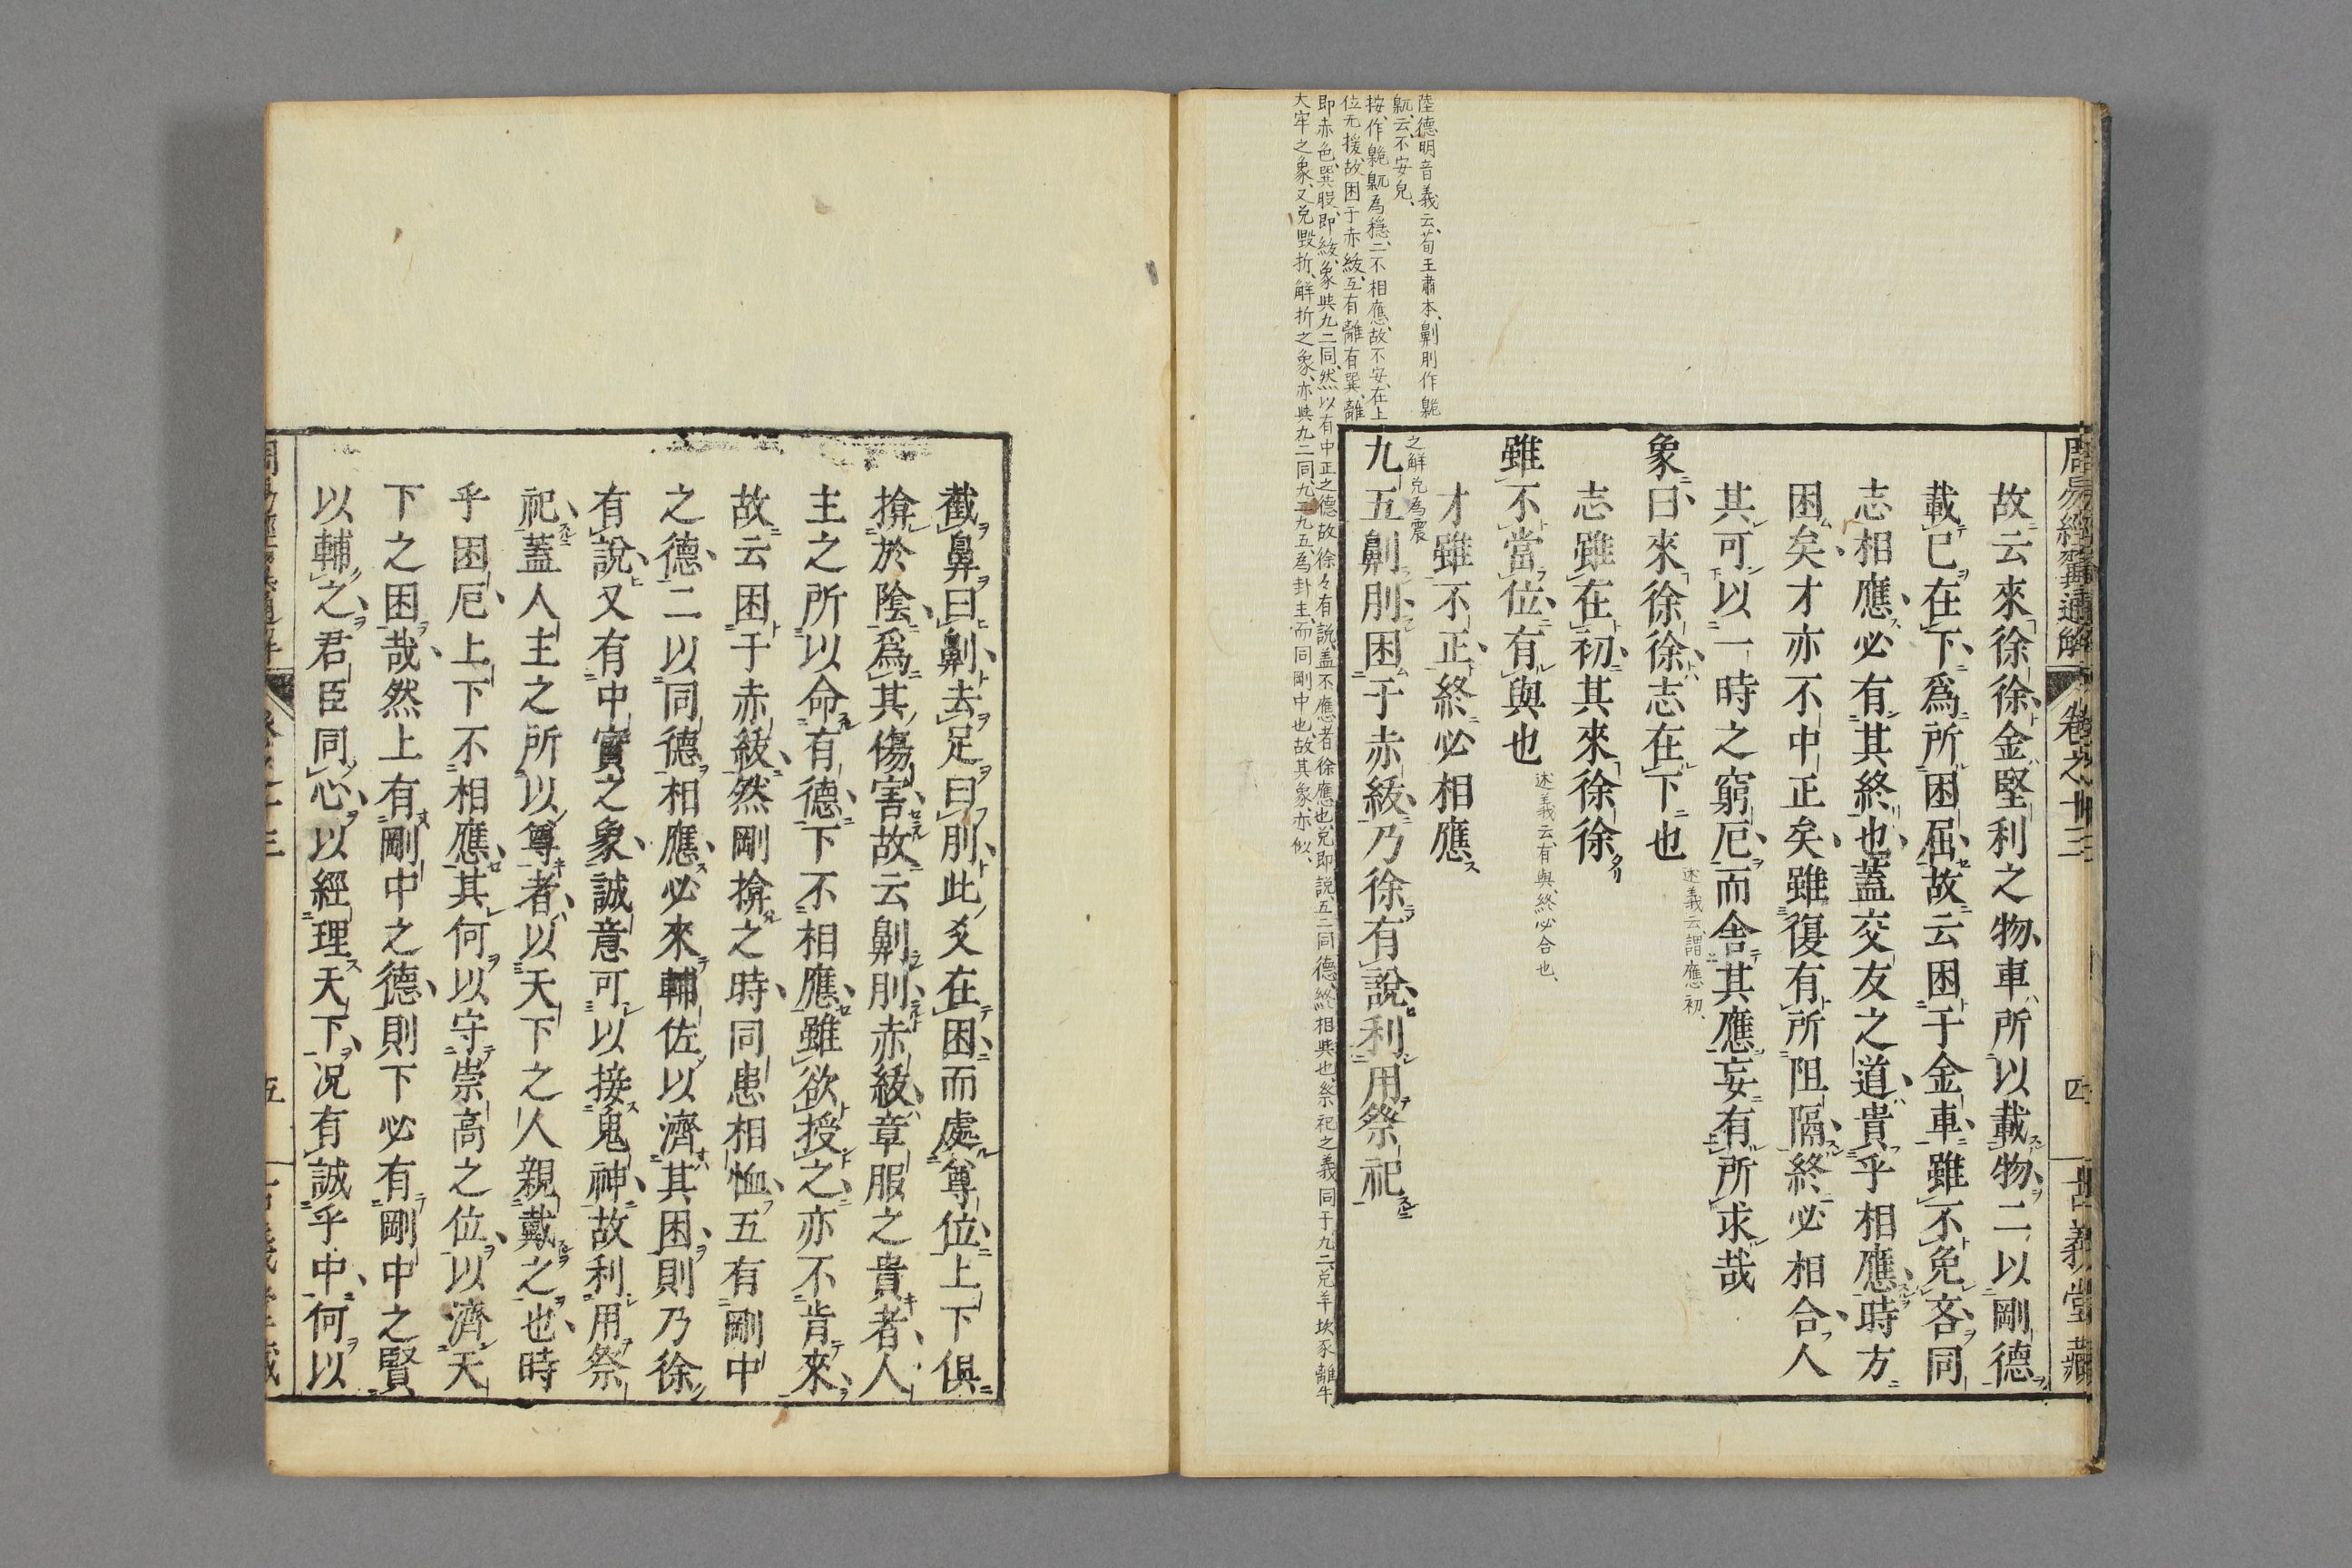 周易經翼通解 卷之十三 四 古義堂藏
故云來徐徐金堅利之物車所以載物二以剛德
載已在下爲所困屈故云困于金車雖不免吝同
志相應必有其終也蓋交友之道貴乎相應時方
困矣才亦不中正矣雖復有所阻隔終必相合人
其可以一時之窮厄而舍其應妄有所求哉
象曰來徐徐志在下也 述義云謂應初
志雖在初其來徐徐
雖不當位有與也 述義云有與終必合也
才雖不正終必相應
九五劓刖困于赤紱乃徐有說利用祭祀
陸德明音義云荀王肅本劓刖作臲
䲨云不安皃
按作臲䲨為穩二不相應故不安在上
位无援故困于赤紱互有離有巽離
即赤色巽股即紱象與九二同然以有中正之德故徐々有說盖不應者徐應也兌即說五二同德終相與也祭祀之義同于九二兌羊坎豕離牛
大牢之象又兌毀折解折之象亦與九二同九二九五為卦主而同剛中也故其象亦似
之解兌為震
截鼻曰劓去足曰刖此爻在困而處尊位上下俱
揜於陰爲其傷害故云劓刖赤紱章服之貴者人
主之所以命有德下不相應雖欲授之亦不肯來
故云困于赤紱然剛揜之時同患相恤五有剛中
之德二以同德相應必來輔佐以濟其困則乃徐
有說又有中實之象誠意可以接鬼神故利用祭
祀蓋人主之所以尊者以天下之人親戴之也時
乎困厄上下不相應其何以守崇高之位以濟天
下之困哉然上有剛中之德則下必有剛中之賢
以輔之君臣同心以經理天下況有誠乎中何以